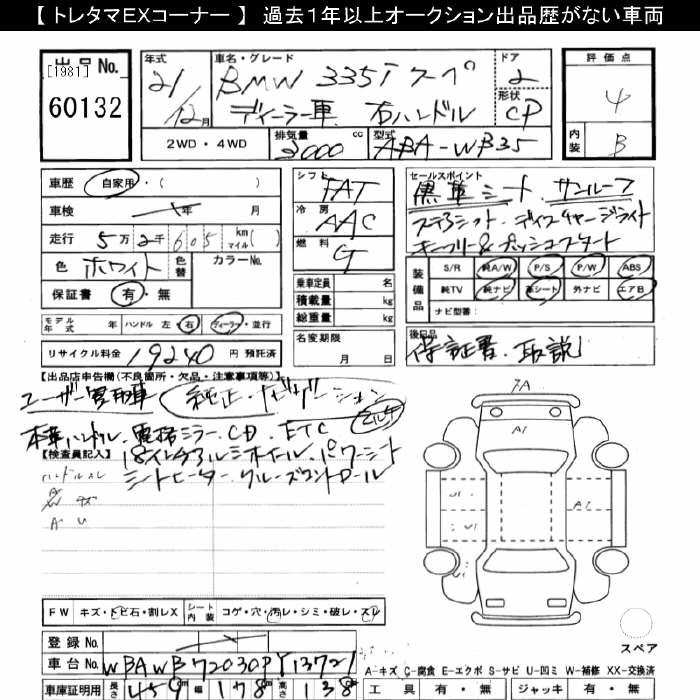 【 トレタマEXコーナー 】 過去1年以上オークション出品歴がない車両
出品No.
[1981]
60132
年式
21/12月
車名・グレード
BMW 335i クーペ
ディーラー車 右ハンドル
ドア
2
形状
CP
評価点
4
内装
B
2WD・4WD
排気量
3000 cc
型式
ABA-WB35
車歴 自家用・( )
車検 年 月
走行 5万2千605 km マイル( )
色 ホワイト 色替 カラーNo.
保証書 有・無
シフト
FAT
冷房
AAC
燃料
G
乗車定員 名
積載量 kg
総重量 kg
セールスポイント
黒革シート、サンルーフ
キーフリー&プッシュスタート
装備品
S/R 純A/W P/S P/W ABS
純TV 純ナビ 革シート 外ナビ エアB
ナビ型番:
モデル年式 年 ハンドル 左 右 ディーラー・並行
リサイクル料金 19240 円 預託済
名変期限
月 日
後日品
保証書、取説
【出品店申告欄(不良箇所・欠品・注意事項等)】
ユーザー買取車 純正・ナビゲーション
本革ハンドル、電格ミラー、CD、ETC
【検査員記入】
18インチアルミホイール、パワーシート
シートヒーター クルーズコントロール
ハンドルスレ
キズ
A U
7A
A1
U1
U1
FW キズ・トビ石・割レX シート内装 コゲ・穴・汚レ・シミ・破レ・スレ
登録No.
車台No. WBAWB72030PY13721
車庫証明用 長さ 459cm 幅 178cm 高さ 138
スペア
A-キズ C-腐食 E-エクボ S-サビ U-凹ミ W-補修 XX-交換済
工具 有・無 ジャッキ 有・無